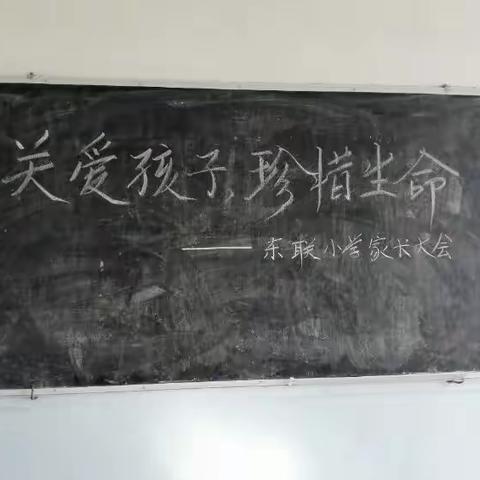 关爱孩子,珍惜生命
——东联小学家长大会